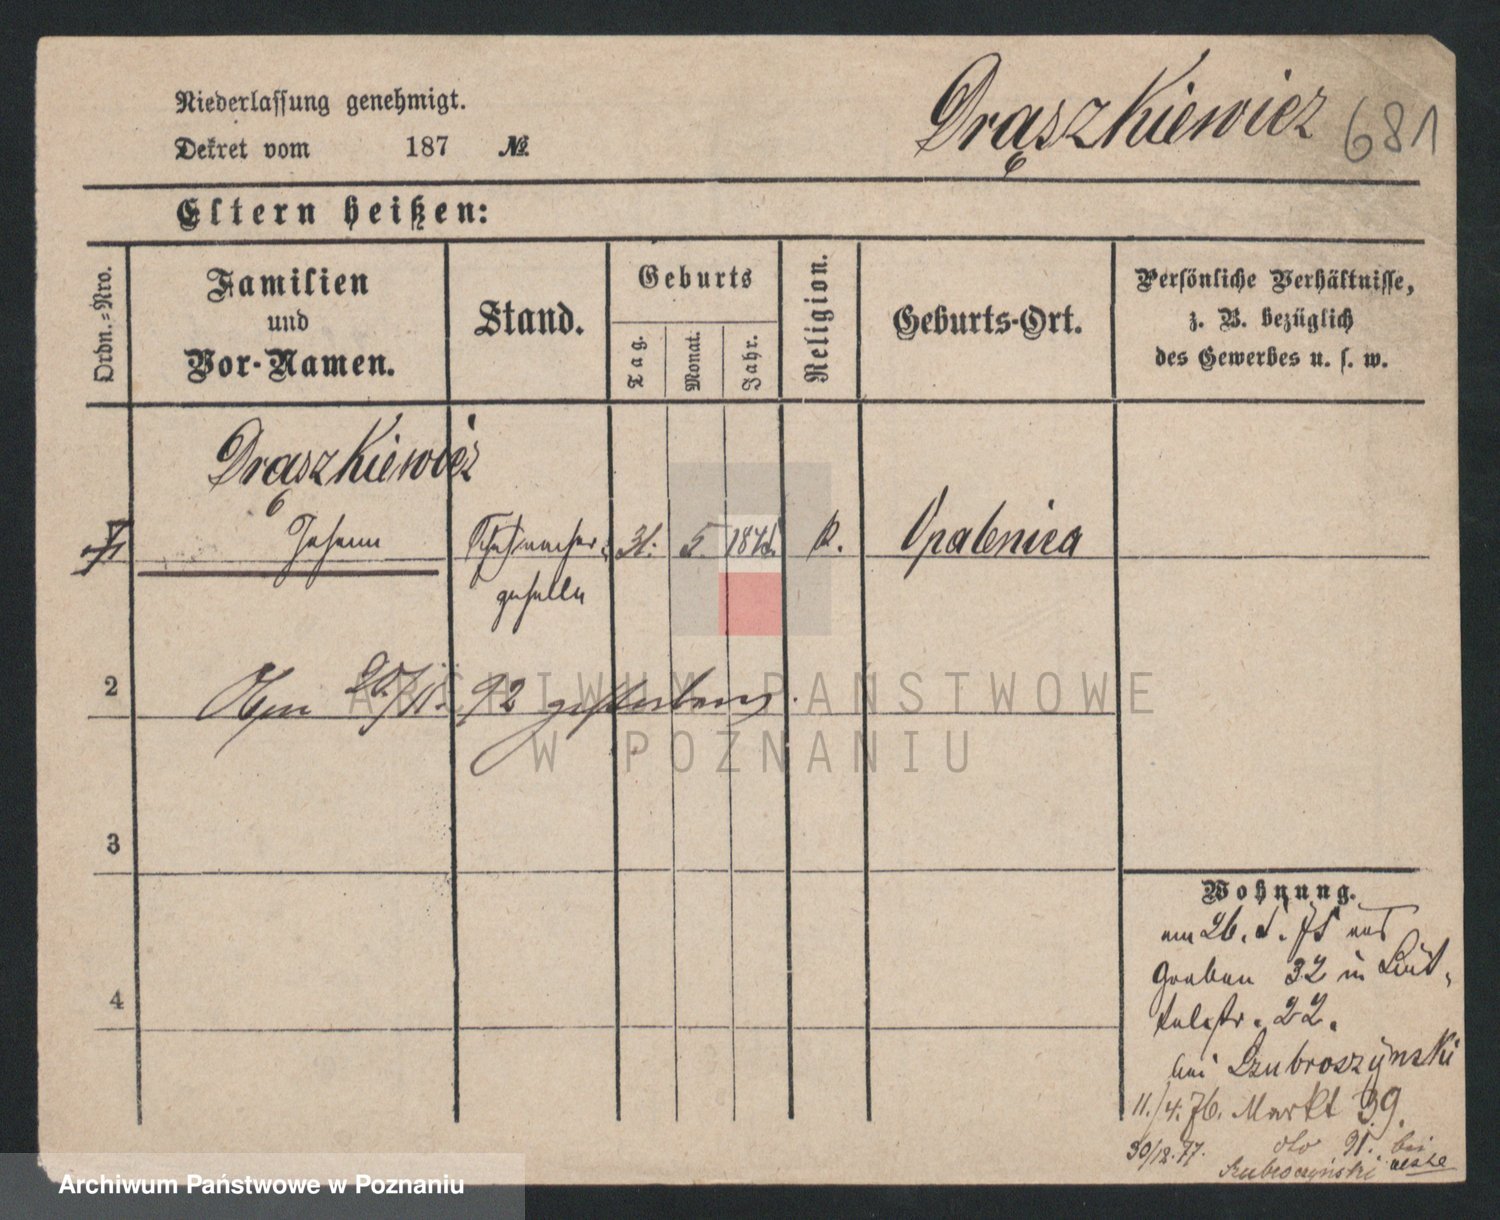 Niederlassung genehmigt.
Dekret vom 187 №.
Drąszkiewicz 681
Eltern heißen:
Ordn.-Nro.
Familien
und
Vor-Namen.
Stand.
Geburts
Tag.
Monat.
Jahr.
Religion.
Geburts-Ort.
Persönliche Verhältnisse,
z. B. bezüglich
des Gewerbes u. s. w.
Drąszkiewicz
Johann
geselle
31. 5.
k.
Opalenica
2
20/11. 92 gestorben.
3
4
Wohnung.
am 26.
Graben 32 in
22.
bei
11./4. 76. Markt 39.
30/12. 77. dto 91. bei
ARCHIWUM PAŃSTWOWE
W POZNANIU
Archiwum Państwowe w Poznaniu